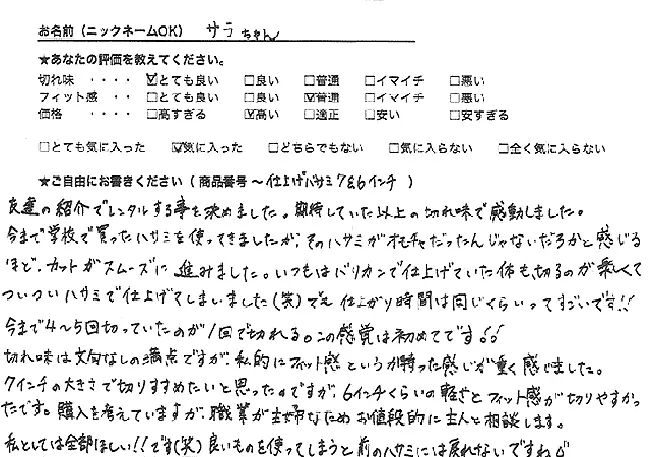 お名前(ニックネームOK) サラちゃん
★あなたの評価を教えてください。
切れ味 ・・・・ ☑とても良い □良い □普通 □イマイチ □悪い
フィット感 ・・ □とても良い □良い ☑普通 □イマイチ □悪い
価格 ・・・・ □高すぎる ☑高い □適正 □安い □安すぎる
□とても気に入った ☑気に入った □どちらでもない □気に入らない □全く気に入らない
★ご自由にお書きください(商品番号~仕上げバサミ7&6インチ)
友達の紹介でレンタルする事を決めました。期待していた以上の切れ味で感動しました。
今まで学校で買ったハサミを使ってきましたが、そのハサミがオモチャだったんじゃないだろうかと感じる
ほど、カットがスムーズに進みました。いつもはバリカンで仕上げていた体も、切るのが楽しくて
ついついハサミで仕上げてしまいました(笑)でも仕上がり時間は同じくらいってすごいです!!
今まで4~5回切っていたのが1回で切れる。この感覚は初めてです!!
切れ味は文句なしの満点ですが、私的にフィット感というか持った感じが重く感じました。
7インチの大きさで切りすすめたいと思ったのですが、6インチくらいの軽さとフィット感が切りやすかっ
たです。購入を考えていますが、職業が主婦なためお値段的に主人と相談します。
私としては全部ほしい!!です(笑)良いものを使ってしまうと前のハサミには戻れないですね